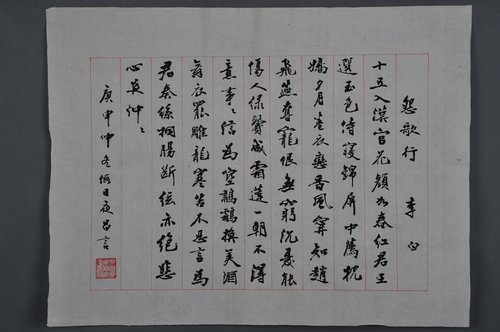 怨歌行 李白
十五入漢宮花顏如春紅君王
選玉色侍寢錦屏中薦枕
嬌夕月卷衣戀香風寧知趙
飛燕奪寵恨無窮沉憂能
傷人綠鬢成霜蓬一朝不得
意事〻徒為空鷫鸘換美酒
舞衣罷雕龍寒苦不忍言為
君奏絲桐腸斷弦亦絕悲
心夜忡〻
庚申仲冬日夜昌言